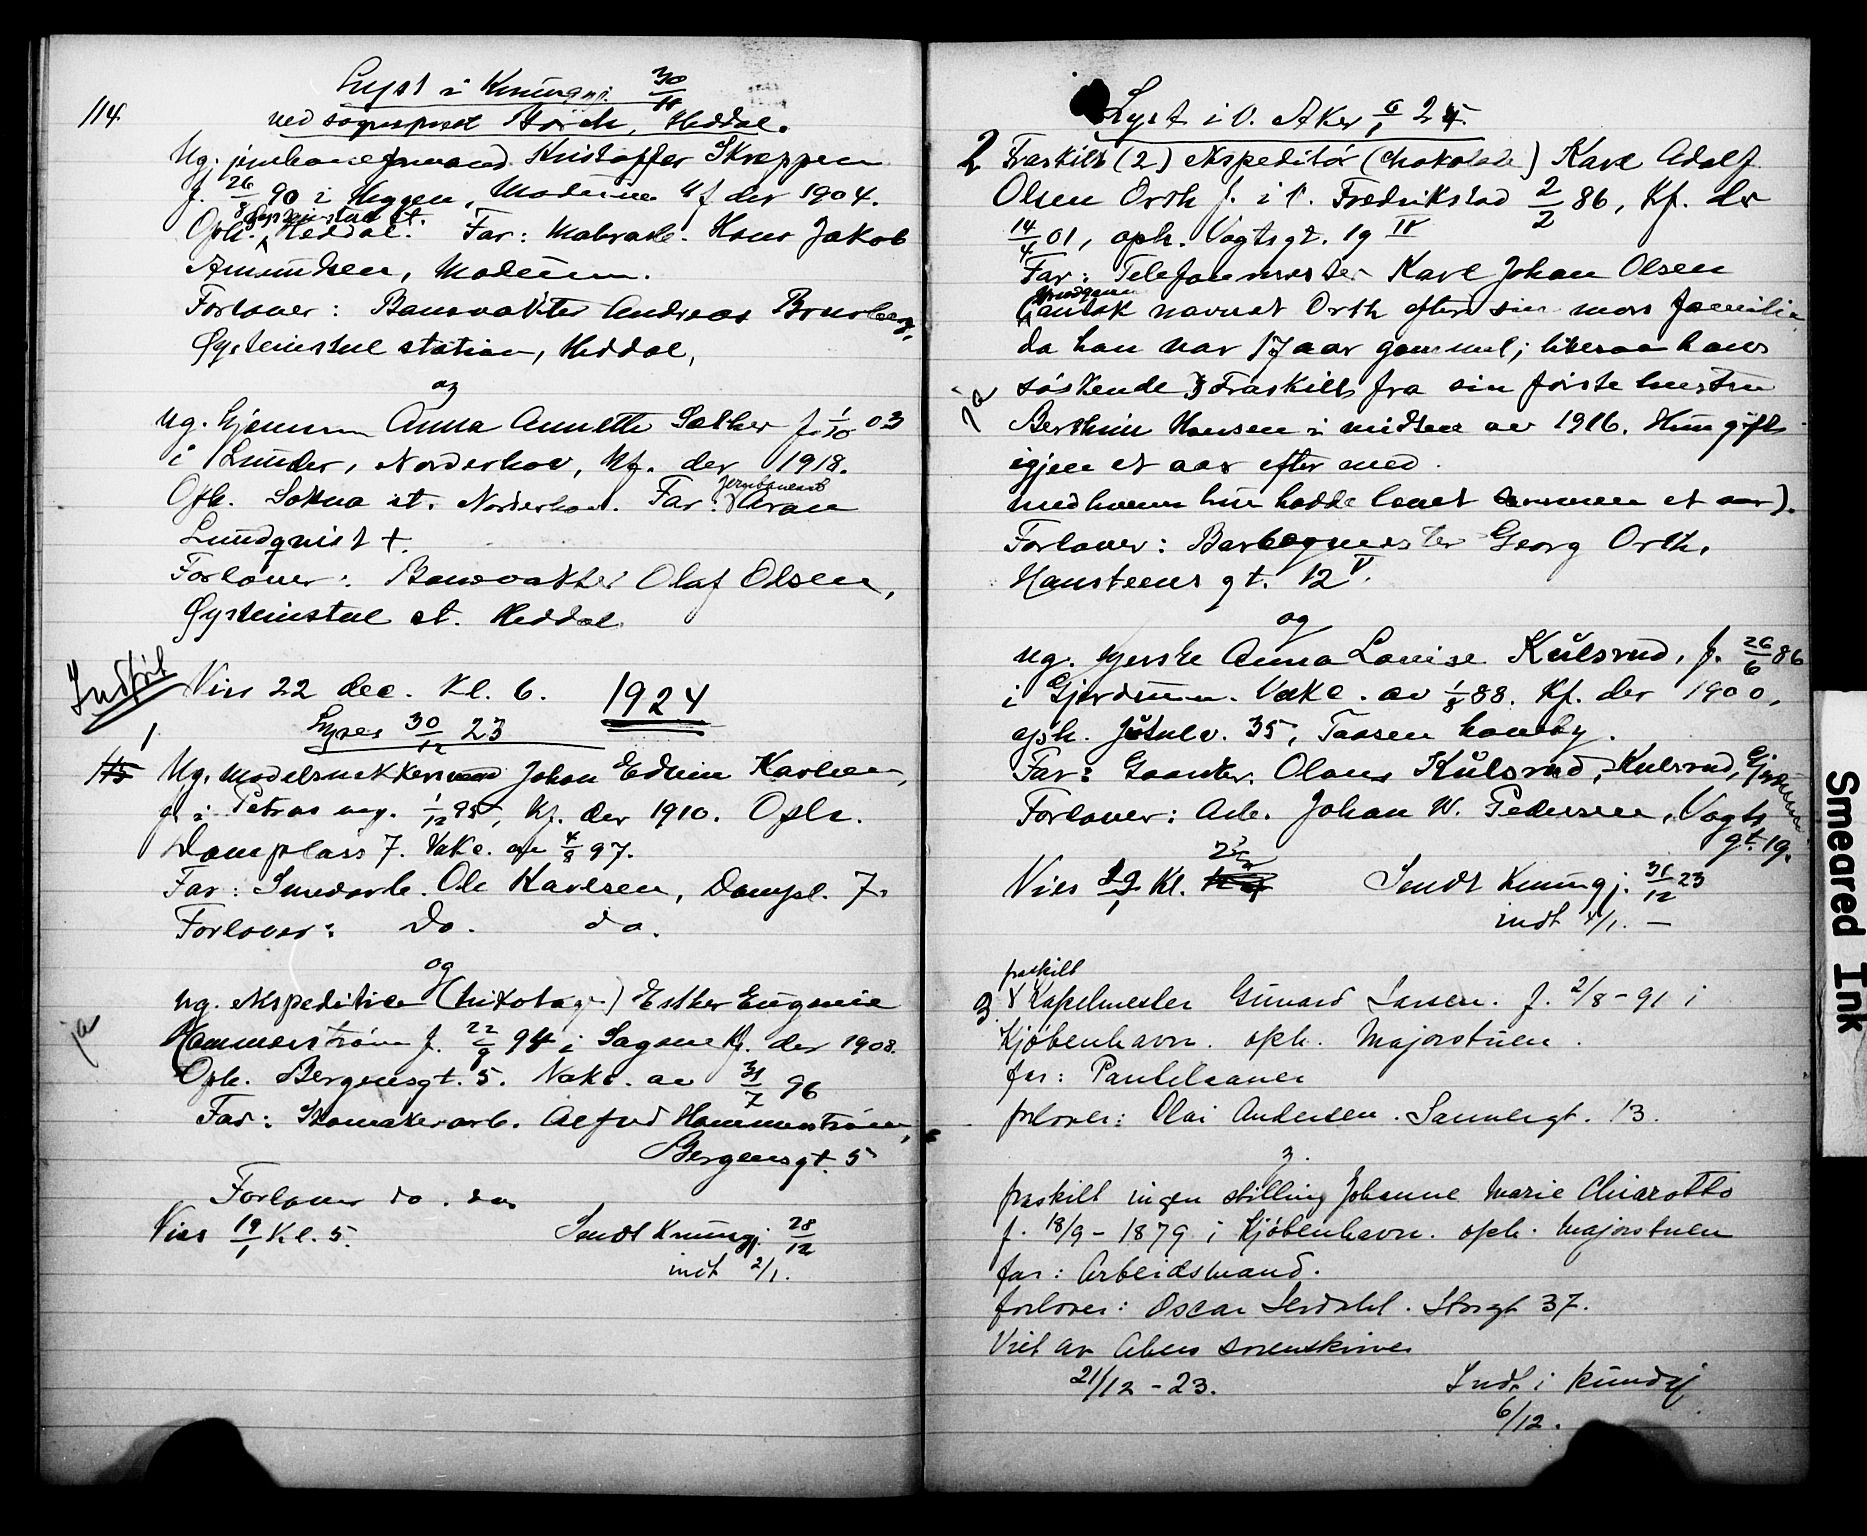 Lyst i Kunngj. 30/11
114 ved sogneprest Hörch, Heddal.
Ug. Kristoffer Skreppen
f. 26/8 90 i Heggen, Modum Kf der 1904.
Oph. Heddal. Far: Malerarb. Hans Jakob
Amundsen, Modum.
Forlover: Banevokter Andreas Brusberg,
Øysteinstul station, Heddal,
og
ug. Anna Annette Sæther f. 1/10 03
i Lunder, Norderhov, Kf. der 1918.
Oph. Sokna st. Norderhov. Far:
Lundqvist +.
Forlover: Banevokter Olaf Olsen,
Øysteinstul st. Heddal
Indført Vies 22 dec. Kl. 6. 1924
Lyses 30/12 23
1
115 Ug. Modelsnekker Johan Edvin Karlsen,
f. i Petrus mg. 1/12 95, Kf. der 1910. Oph.
Damplass 7. Vakc. av 4/8 97.
Far: Smedarb. Ole Karlsen, Dampl. 7.
Forlover: do. do.
og
ja ug. ekspeditrice Esther Eugenie
Hammerstrøm f. 22/9 94 i Sagene Kf. der 1908.
Oph. Bergensgt. 5. Vakc. av 31/7 96
Far: Skomakerarb. Alfred Hammerstrøm,
Bergensgt. 5
Forlover do. do
Vies 19/1 Kl. 5. Sendt Kunngj. 28/12
indt 2/1.
Lyst i V. Aker 6/1 24.
2 Fraskilt (2) ekspeditör (chokolade) Karl Adolf
Olsen Orth f. i V. Fredrikstad 2/2 86, Kf. der
14/4 01, oph. Vogtsgt. 19 IV
Far: Telefonmester Karl Johan Olsen
(Brudgom antok navnet Orth efter sin mors familie
da han var 17 aar gammel; likesaa hans
ja söskende Fraskilt fra sin förste hustru
Berthine Hansen i midten av 1916. Hun gift
igjen et aar efter med
med hvem hun hadde levet sammen et aar).
Forlover: Georg Orth,
Hansteens gt. 12 V.
og
ug. syerske Anna Lovise Kulsrud, f. 26/6 86
i Gjerdrum. Vakc. av 1/8 88. Kf. der 1900,
oph. Jutulv. 35, Taasen haveby.
Far: Gaardbr. Olaus Kulsrud, Kulsrud, Gjerdrum
Forlover: Arb. Johan W. Pedersen, Vogts
gt. 19.
Vies Kl. Sendt Kunngj. 31/12 23
indt 4/1. —
fraskilt
3 Kapelmester Gunnar Larsen. f. 2/8 - 91 i
Kjöbenhavn. oph. Majorstuen.
far: Pantelaaner
forlover: Olai Andersen. Sannergt. 13.
og
fraskilt ingen stilling Johanne Marie Chiarotto
f. 18/9 - 1879 i Kjöbenhavn. oph. Majorstuen
far: Arbeidsmand.
forlover: Oscar Storgt 37.
Viet av Akers sorenskriver
21/12 - 23. Indt. i kundgj
6/12.
Smeared Ink